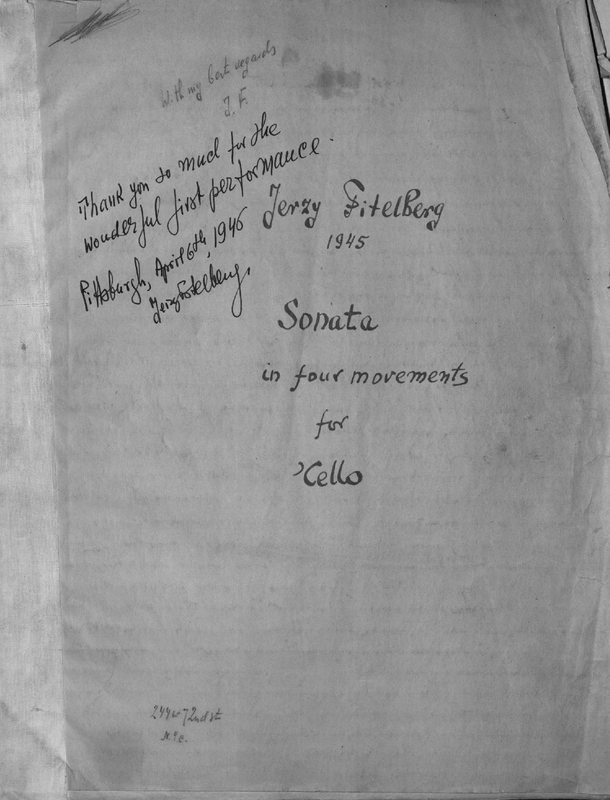 With my best regards
J. F.
Thank you so much for the
wonderful first performance.
Pittsburgh, April 6th, 1946
Jerzy Fitelberg.
Jerzy Fitelberg
1945
Sonata
in four movements
for
'Cello
244 W 72nd st
N.Y.C.